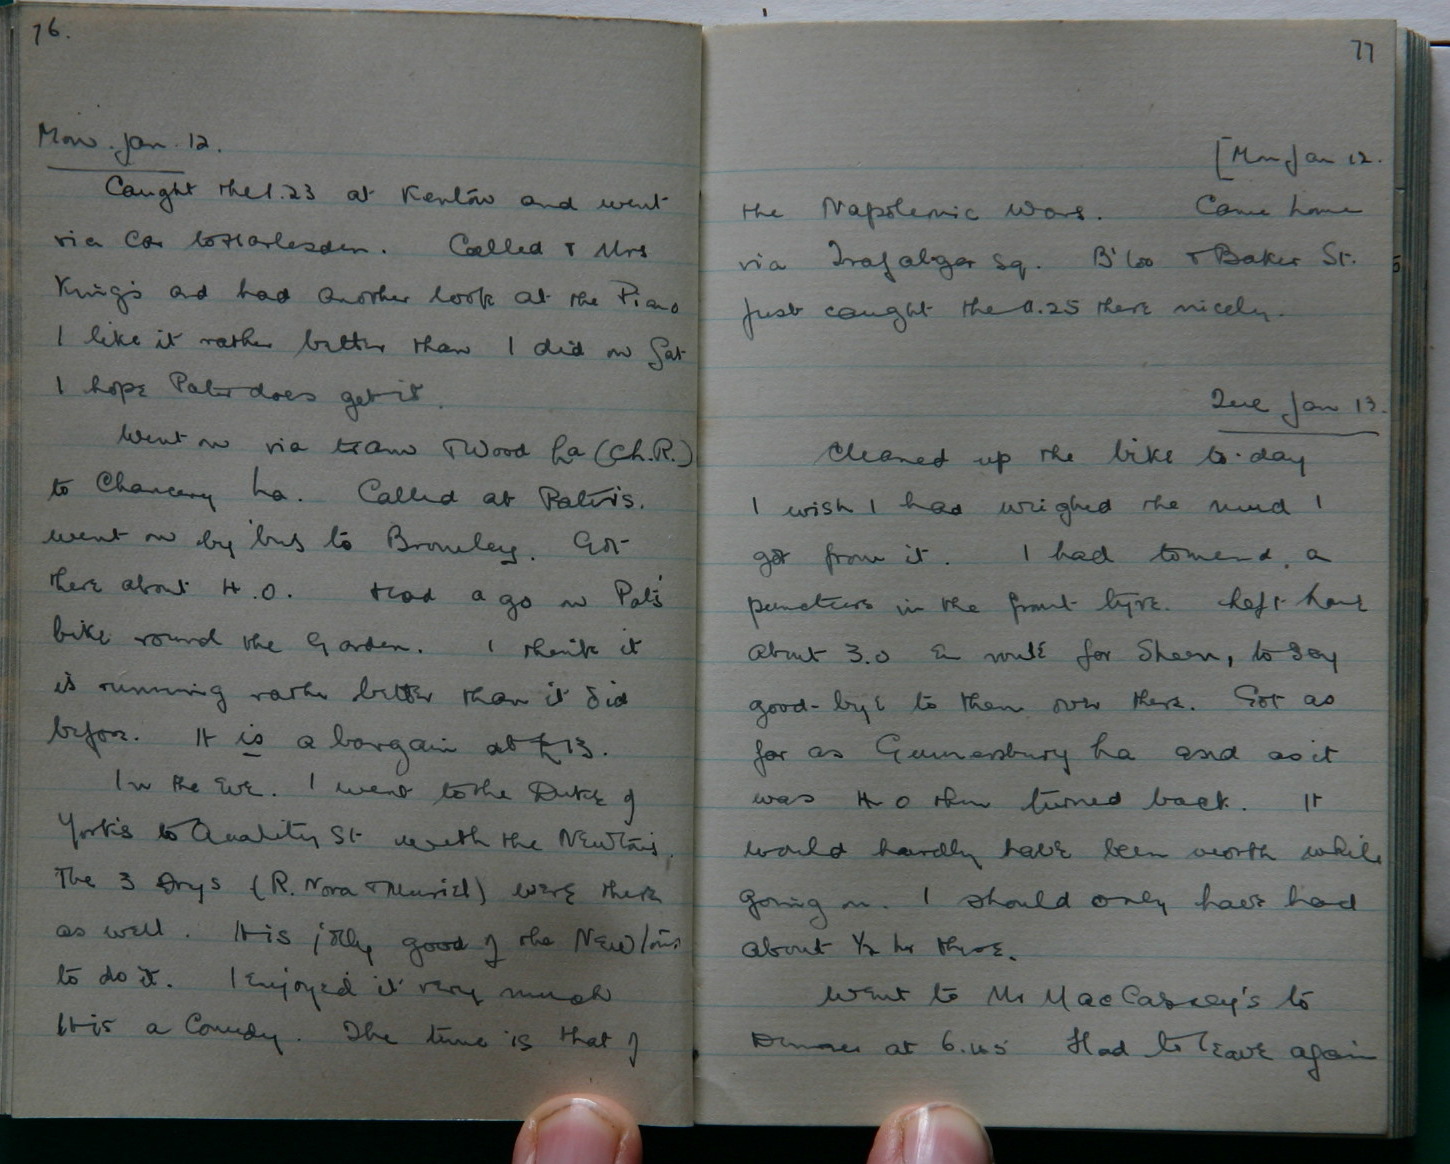 76.
Mon. Jan. 12.
Caught the 1.23 at Kenton and went
via Car to Harlesden. Called & Mrs
King's and had another look at the Piano
I like it rather better than I did on Sat
I hope Pater does get it.
Went on via tram & Wood La (Ch.R.)
to Chancery La. Called at Pater's.
went on by 'bus to Bromley. Got
there about 4.0. Had a go on Pat's
bike round the Garden. I think it
is running rather better than it did
before. It is a bargain at £13.
In the Eve. I went to the Duke of
York's to Quality St with the Newtons.
The 3 Drys (R. Nora & Muriel) were there
as well. It is jolly good of the Newtons
to do it. I enjoyed it very much
It is a Comedy. The time is that of
77
[Mon Jan 12.
the Napoleonic Wars. Came home
via Trafalgar Sq. B'loo & Baker St.
Just caught the 11.25 there nicely.
Tue Jan 13.
Cleaned up the bike to-day
I wish I had weighed the mud I
got from it. I had to mend a
puncture in the front tyre. Left home
about 3.0 en route for Sheen, to say
good-bye to them over there. Got as
far as Gunnersbury La and as it
was 4.0 then turned back. It
would hardly have been worth while
going on. I should only have had
about ½ hr there.
Went to Mr MacCaskey's to
Dinner at 6.45 Had to leave again